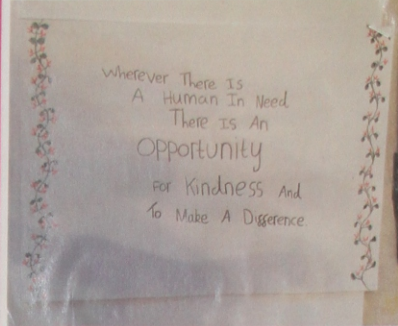 Wherever There Is
A Human In Need
There Is An
Opportunity
For Kindness And
To Make A Difference.